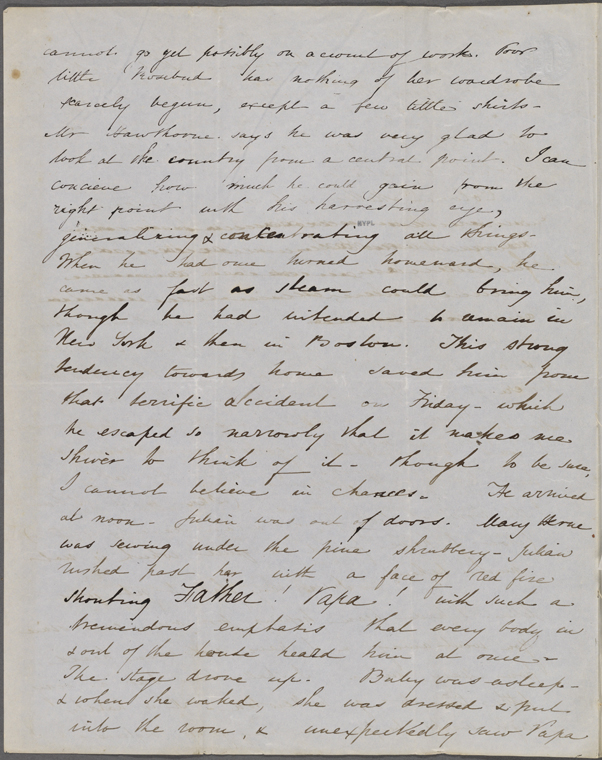 cannot go yet possibly on account of work. Poor
little Rosebud has nothing of her wardrobe
scarcely begun, except a few little shirts—
Mr Hawthorne says he was very glad to
look at the country from a central point. I can
concieve how much he could gain from the
right point with his harvesting eye,
NYPL
generalizing & concentrating all things—
When he had once turned homeward, he
came as fast as steam could bring him,
though he had intended to remain in
New York & then in Boston. This strong
tendency towards home saved him from
that terrific accident on Friday— which
he escaped so narrowly that it makes me
shiver to think of it— though to be sure,
I cannot believe in chances— He arrived
at noon— Julian was out of doors. Mary Herne
was sewing under the pine shrubbery— Julian
rushed past her with a face of red fire
shouting Father! Papa! with such a
tremendous emphasis that every body in
& out of the house heard him at once—
The stage drove up. Baby was asleep—
& when she waked, she was dressed & put
into the room, & unexpectedly saw Papa